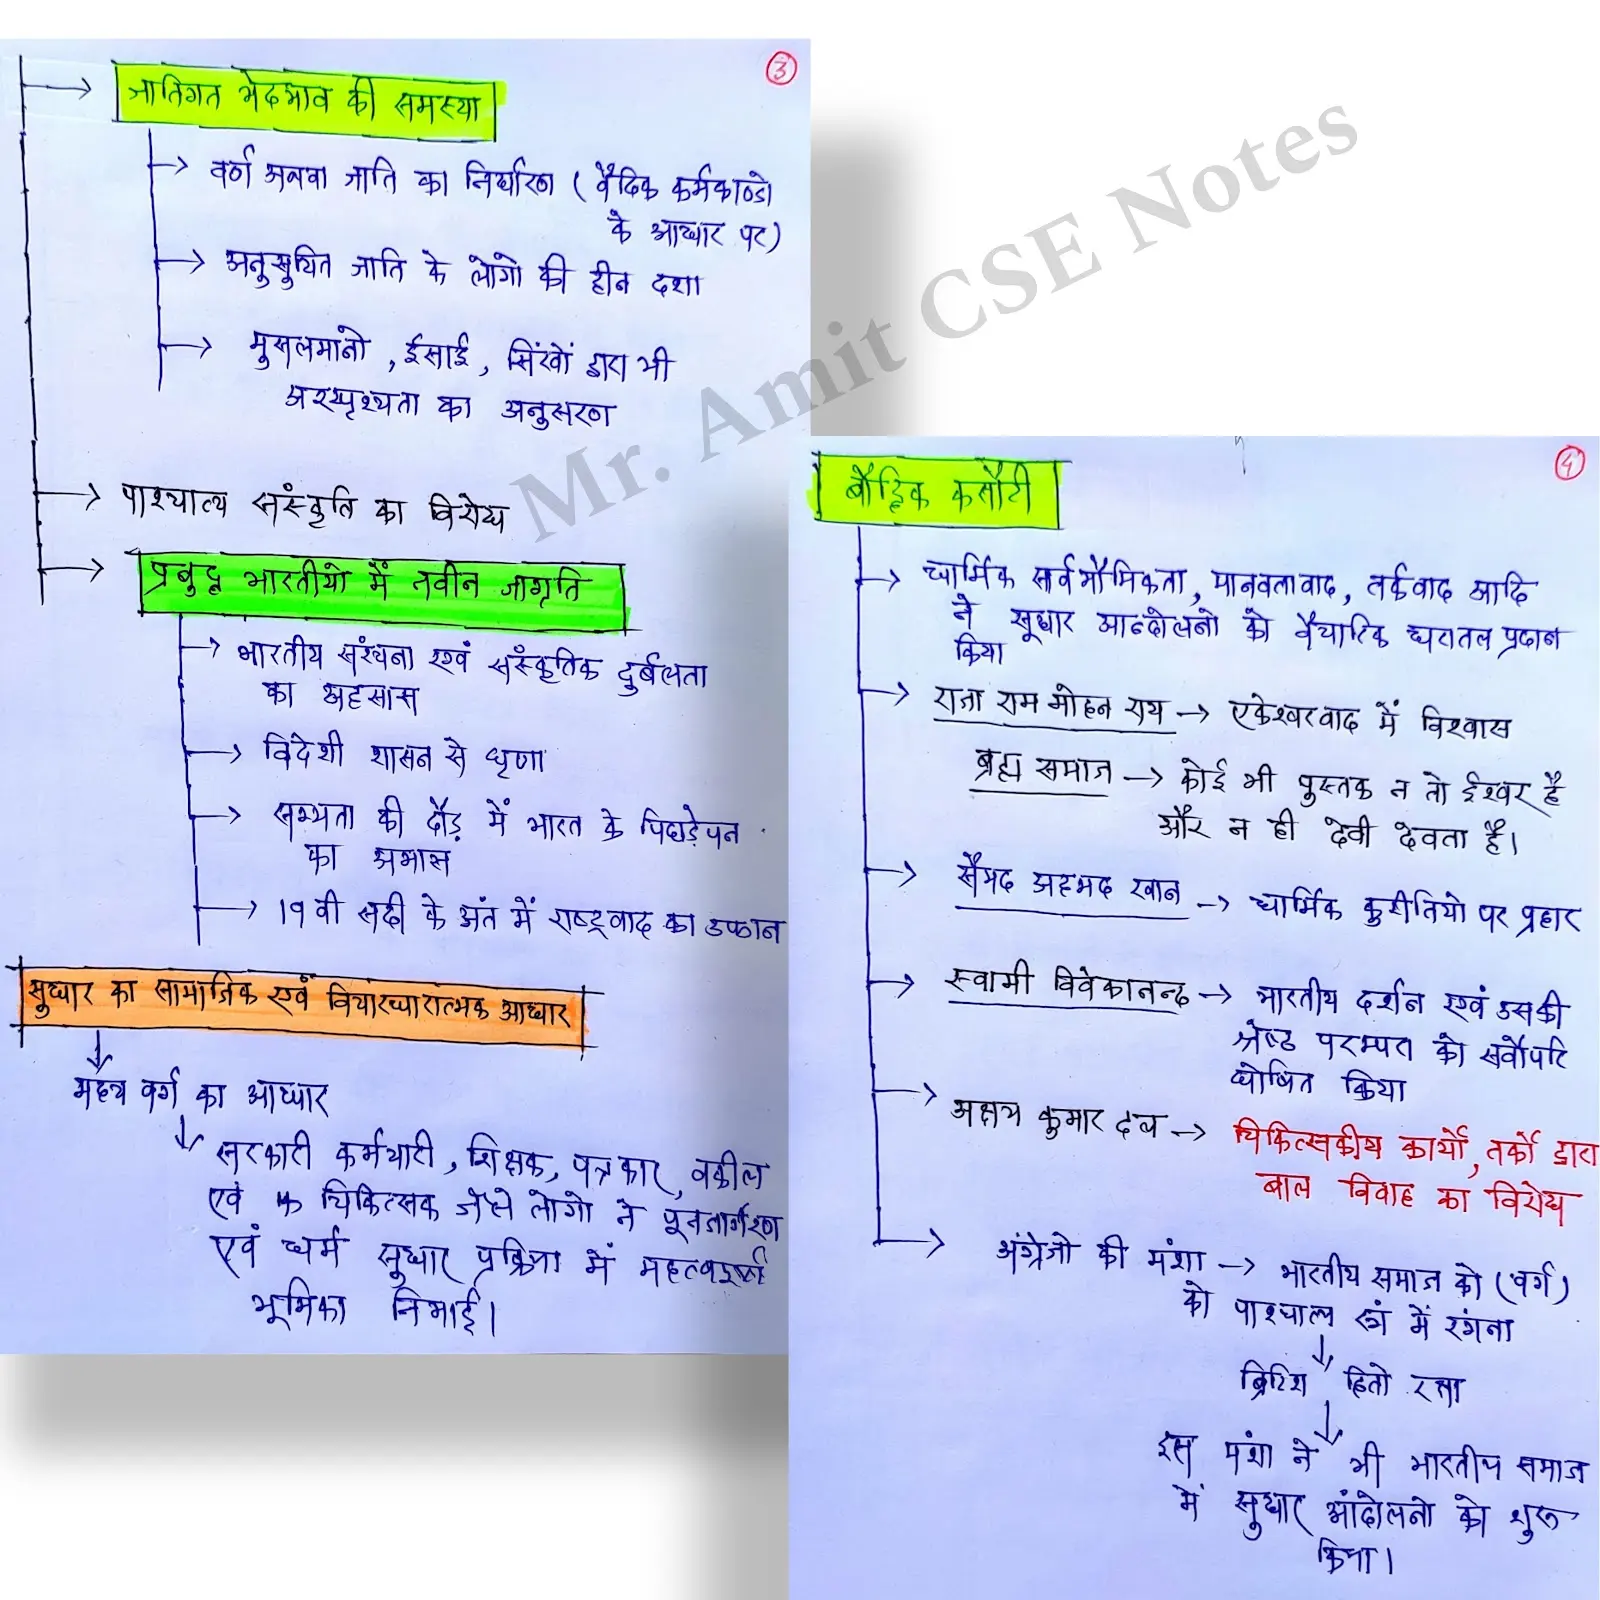 3
जातिगत भेदभाव की समस्या
वर्ण अथवा जाति का निर्धारण (वैदिक कर्मकाण्डो
के आधार पर)
अनुसुचित जाति के लोगो की हीन दशा
मुसलमानो, ईसाई, सिंखों द्वारा भी
अस्पृश्यता का अनुसरण
पाश्चात्य संस्कृति का विरोध
प्रबुद्ध भारतीयो में नवीन जागृति
भारतीय संरचना एवं संस्कृतिक दुर्बलता
का अहसास
विदेशी शासन से घृणा
सभ्यता की दौड़ में भारत के पिछड़ेपन
का अभास
19 वी सदी के अंत में राष्ट्रवाद का उफान
सुधार का सामाजिक एवं विचारधारात्मक आधार
मध्य वर्ग का आधार
सरकारी कर्मचारी, शिक्षक, पत्रकार, वकील
एवं चिकित्सक जैसे लोगो ने पूनर्जागरण
एवं धर्म सुधार प्रक्रिया में महत्वपूर्ण
भूमिका निभाई।
4
बौद्धिक कसौटी
धार्मिक सर्वभौमिकता, मानवतावाद, तर्कवाद आदि
ने सुधार आन्दोलनो को वैचारिक धरातल प्रदान
किया
राजा राम मोहन राय → एकेश्वरवाद में विश्वास
ब्रह्म समाज → कोई भी पुस्तक न तो ईश्वर है
और न ही देवी देवता है।
सैयद अहमद खान → धार्मिक कुरीतियो पर प्रहार
स्वामी विवेकानन्द → भारतीय दर्शन एवं उसकी
श्रेष्ठ परम्परा को सर्वोपरि
घोषित किया
अक्षय कुमार दत्त → चिकित्सकीय कार्यो, तर्को द्वारा
बाल विवाह का विरोध
अंग्रेजो की मंशा → भारतीय समाज को (वर्ग)
को पाश्चात्य रंग में रंगना
ब्रिटिश हितो रक्षा
इस मंशा ने भी भारतीय समाज
में सुधार आंदोलनो को शुरू
किया।
Mr. Amit CSE Notes